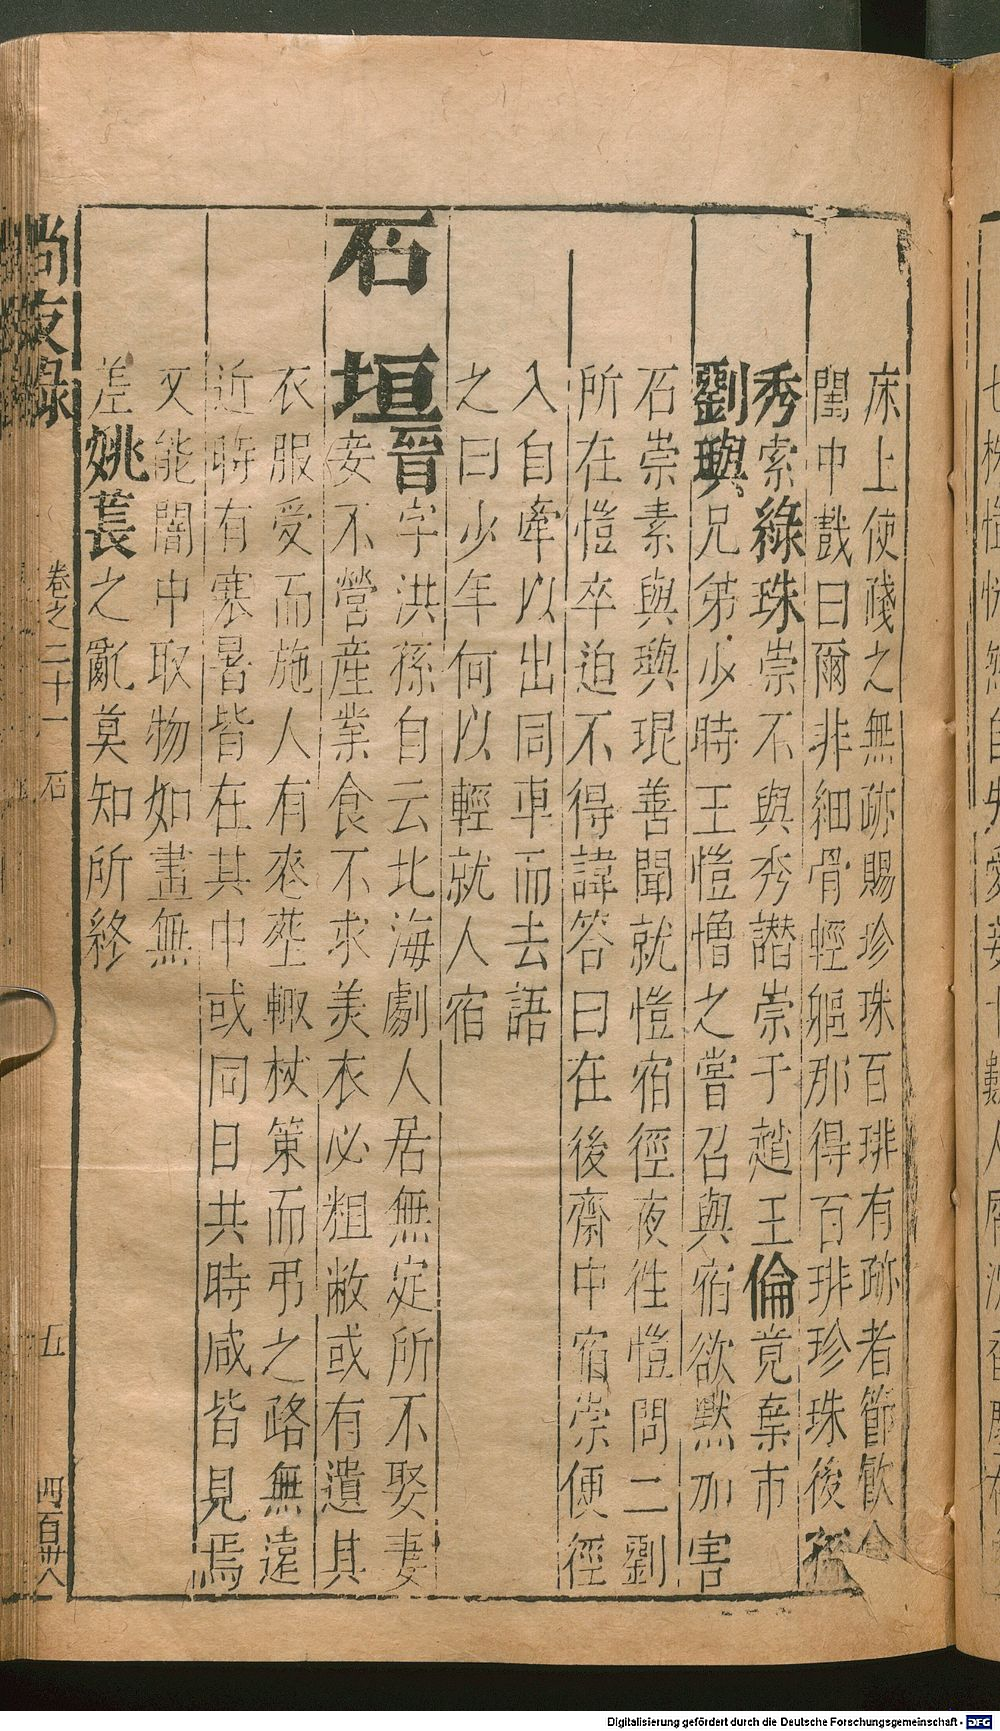 床上使殘之無跡賜珍珠百琲有跡者節飲食
閨中戲曰爾非細骨輕軀那得百琲珍珠後孫
秀索綠珠崇不與秀譖崇于趙王倫竟棄市
劉輿兄弟少時王愷憎之嘗召與宿欲黙加害
石崇素與輿琨善聞就愷宿徑夜徃愷問二劉
所在愷卒迫不得諱答曰在後齋中宿崇便徑
入自牽以出同車而去語
之曰少年何以輕就人宿
石垣晉字洪孫自云北海劇人居無定所不娶妻
妾不營産業食不求美衣必粗敝或有遺其
衣服受而施人有喪塟輙杖策而弔之路無遠
近時有寒暑皆在其中或同日共時咸皆見焉
又能闇中取物如晝無
差姚萇之亂莫知所終
尚友錄 卷之二十一 石 五 四百卅八
Digitalisierung gefördert durch die Deutsche Forschungsgemeinschaft - DFG